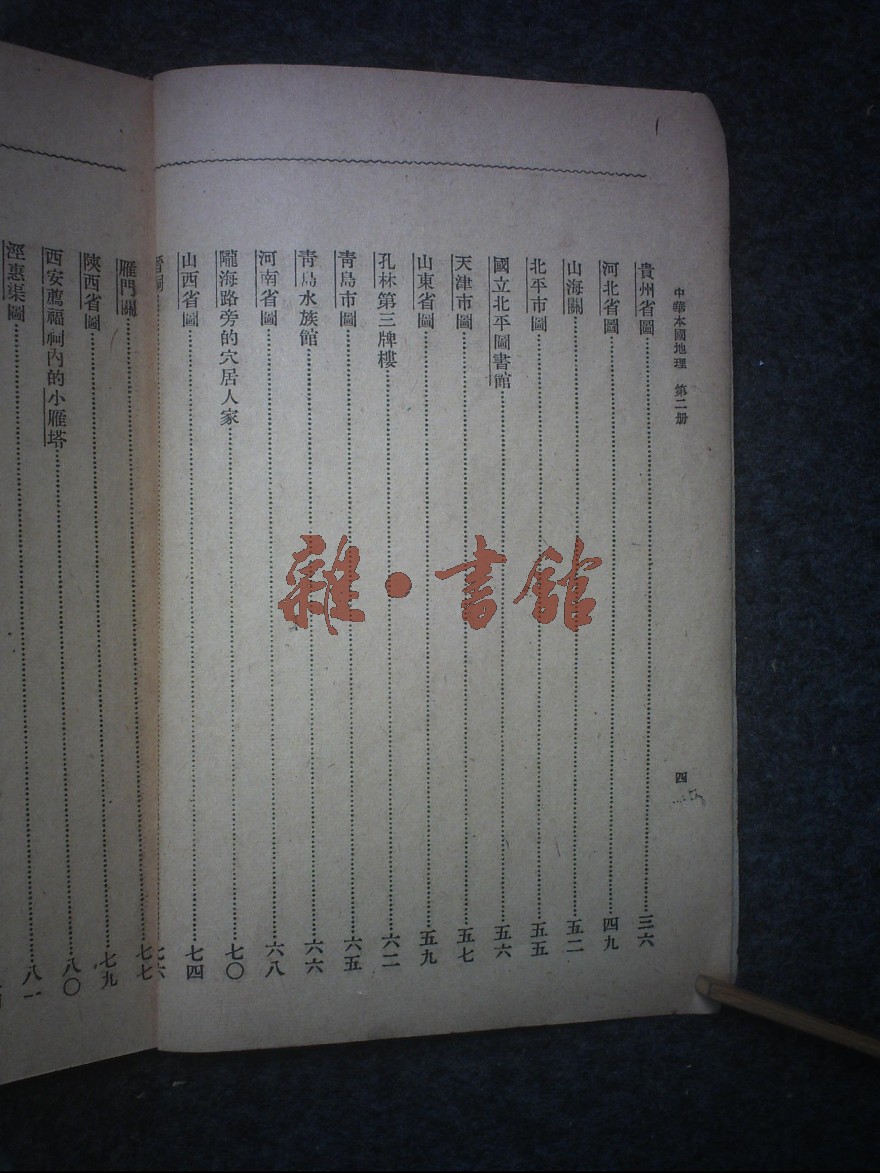 中華本國地理 第二册
四
貴州省圖 三六
河北省圖 四九
山海關 五二
北平市圖 五五
國立北平圖書館 五六
天津市圖 五七
山東省圖 五九
孔林第三牌樓 六二
青島市圖 六五
青島水族館 六六
河南省圖 六八
隴海路旁的穴居人家 七〇
山西省圖 七四
七六
雁門關 七七
陝西省圖 七九
西安薦福祠內的小雁塔 八〇
涇惠渠圖 八一
雜·書館